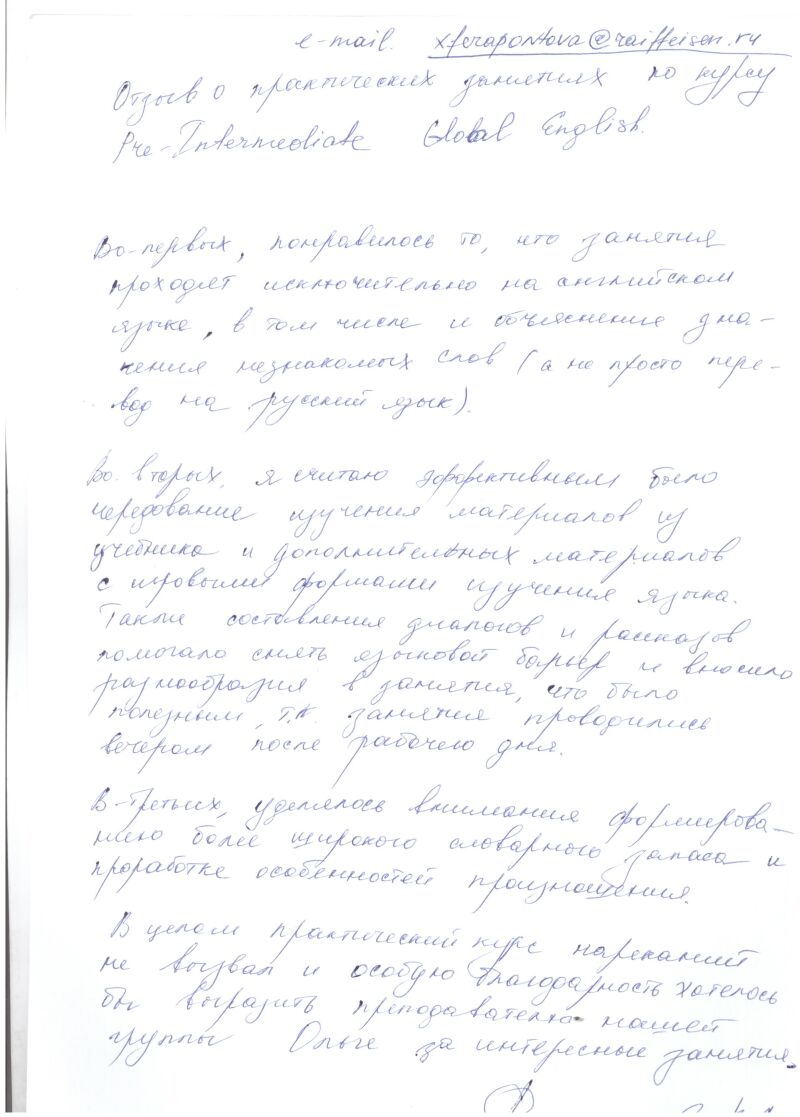 e-mail. xferapontova@raiffeisen.ru
Отзыв о практических занятиях по курсу
Pre-Intermediate Global English.
Во-первых, понравилось то, что занятия
проходят исключительно на английском
языке, в том числе и объяснение зна-
чения незнакомых слов (а не просто пере-
вод на русский язык).
Во-вторых, я считаю эффективным было
чередование изучения материалов из
учебника и дополнительных материалов
с игровыми формами изучения языка.
Также составления диалогов и рассказов
помогало снять языковой барьер и вносило
разнообразия в занятия, что было
полезным, т.к. занятия проводились
вечером после рабочего дня.
В-третьих, уделялось внимания формирова-
нию более широкого словарного запаса и
проработке особенностей произношения.
В целом практический курс нареканий
не вызвал и особую благодарность хотелось
бы выразить преподавателю нашей
группы Ольге за интересные занятия.